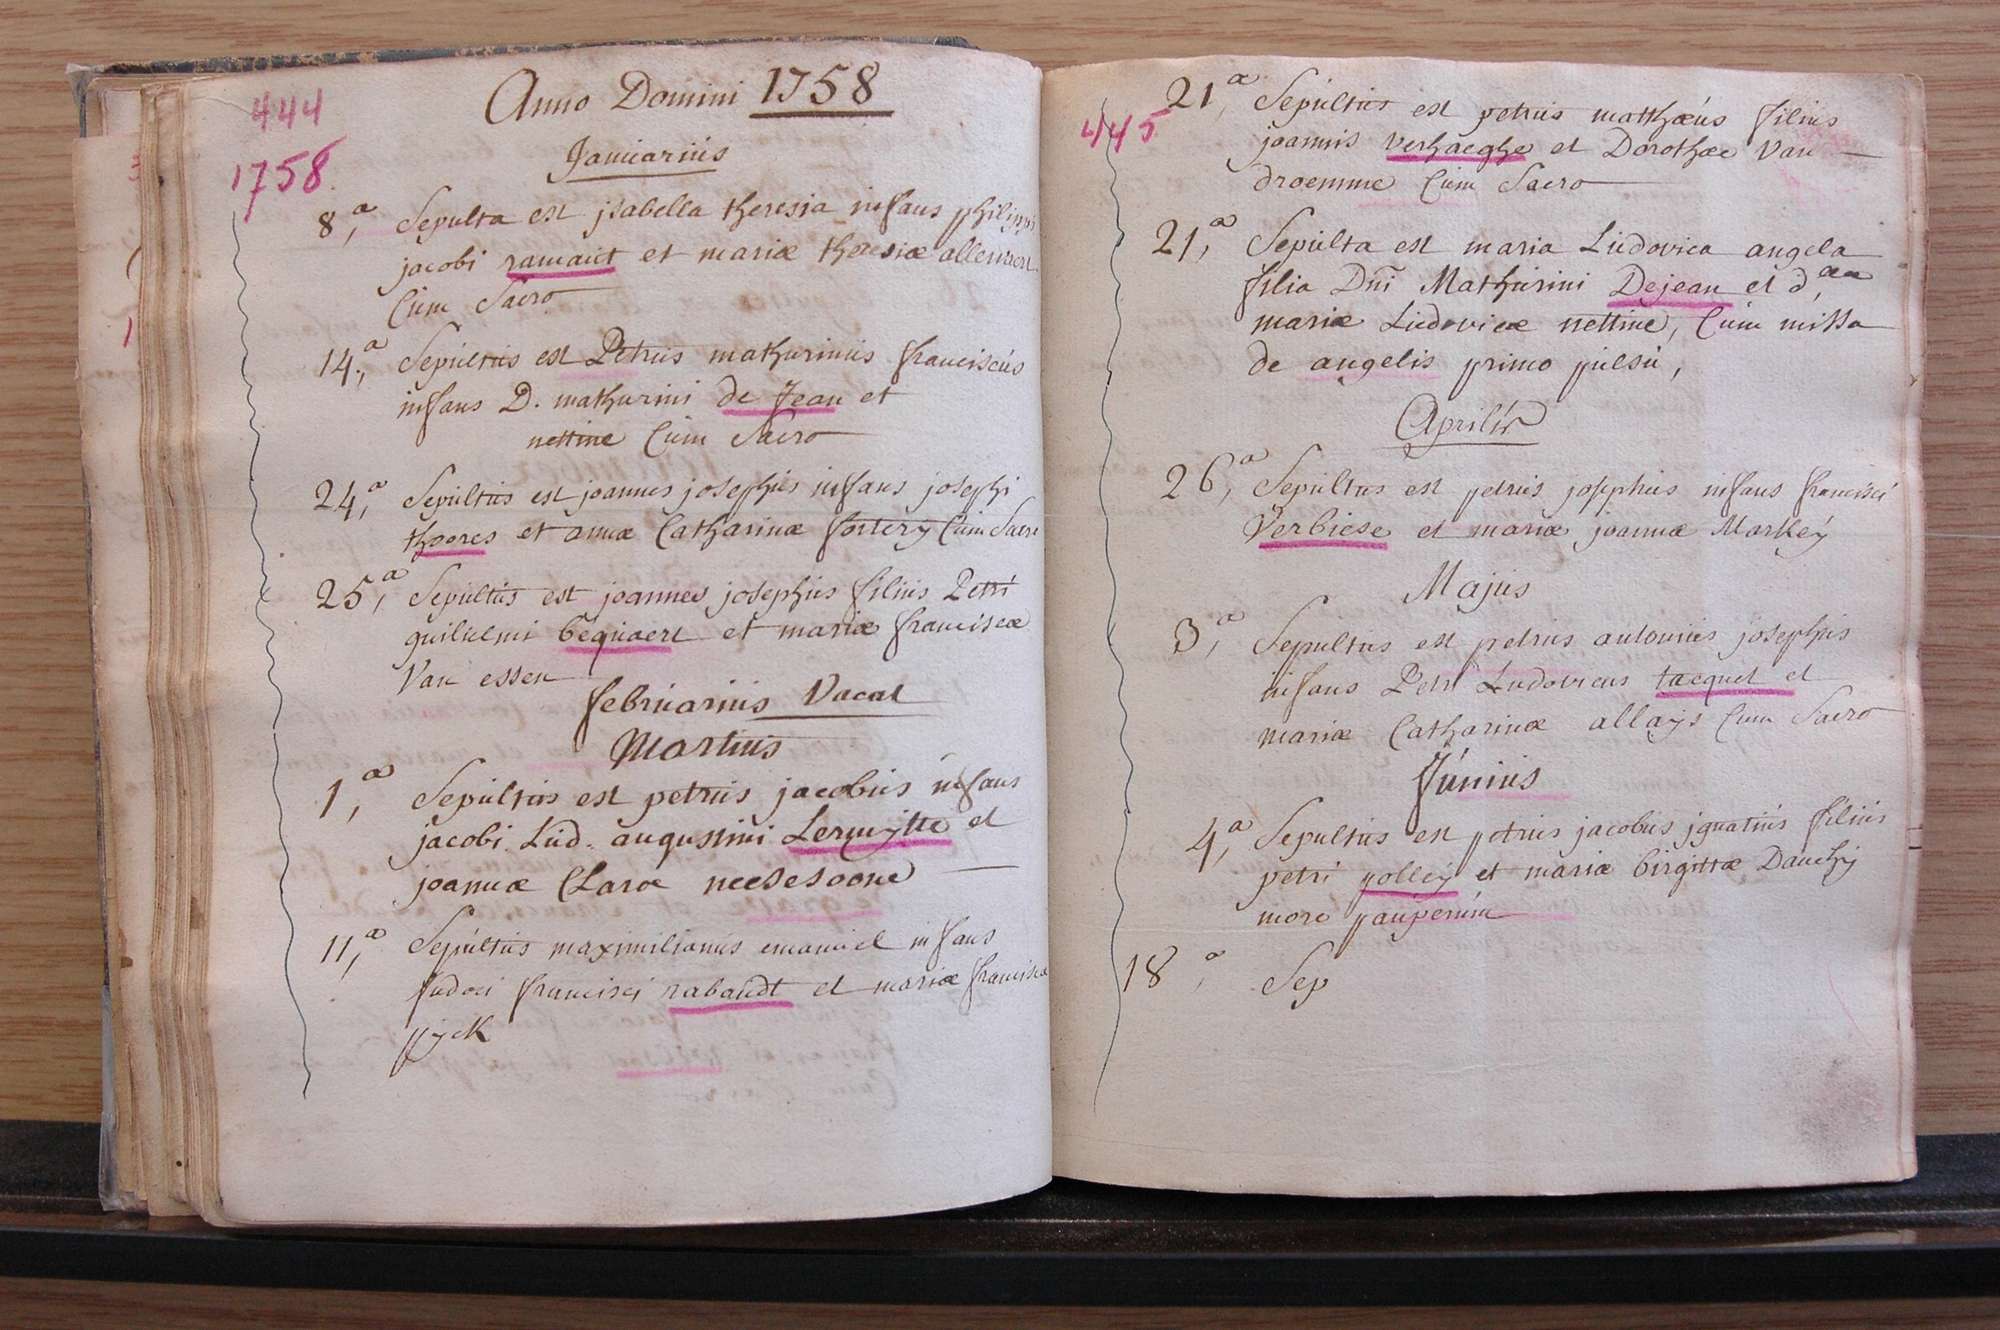 444
Anno Domini 1758
1758
Januarius
8,a Sepulta est jsabella theresia infans philippi
jacobi ramaut et mariæ theresiæ
Cum Sacro
14,a Sepultus est Petrus mathurinus franciscus
infans D. mathurini de Jean et
nettine Cum Sacro
24,a Sepultus est joannes josephus infans josephi
thoores et annæ Catharinæ fortery Cum Sacro
25,a Sepultus est joannes josephus filius Petri
guilielmi bequaert et mariæ franciscæ
Van essen
februarius Vacat
Martius
1,a Sepultus est petrus jacobus infans
jacobi Lud. augustini Lermytte et
joannæ Claræ neesesoone
11,a Sepultus maximilianus emanuel infans
Judoci francisci rabaudt et mariæ franciscæ
pyck
445
21,a Sepultus est petrus matthæus filius
joannis verhaeghe et Dorotheæ Van
droemme Cum Sacro
21,a Sepulta est maria Ludovica angela
filia Dni Mathurini Dejean et d,æ
mariæ Ludovicæ nettine, Cum missa
de angelis primo pulsu,
Aprilis
26,a Sepultus est petrus josephus infans francisci
Verbiese et mariæ joannæ Markey
Majus
3,a Sepultus est petrus antonius josephus
infans Petri Ludovicus tacquet et
mariæ Catharinæ allays Cum Sacro
Junius
4,a Sepultus est petrus jacobus jgnatius filius
petri polley et mariæ birgittæ Dauchy
more pauperum
18,a Sep